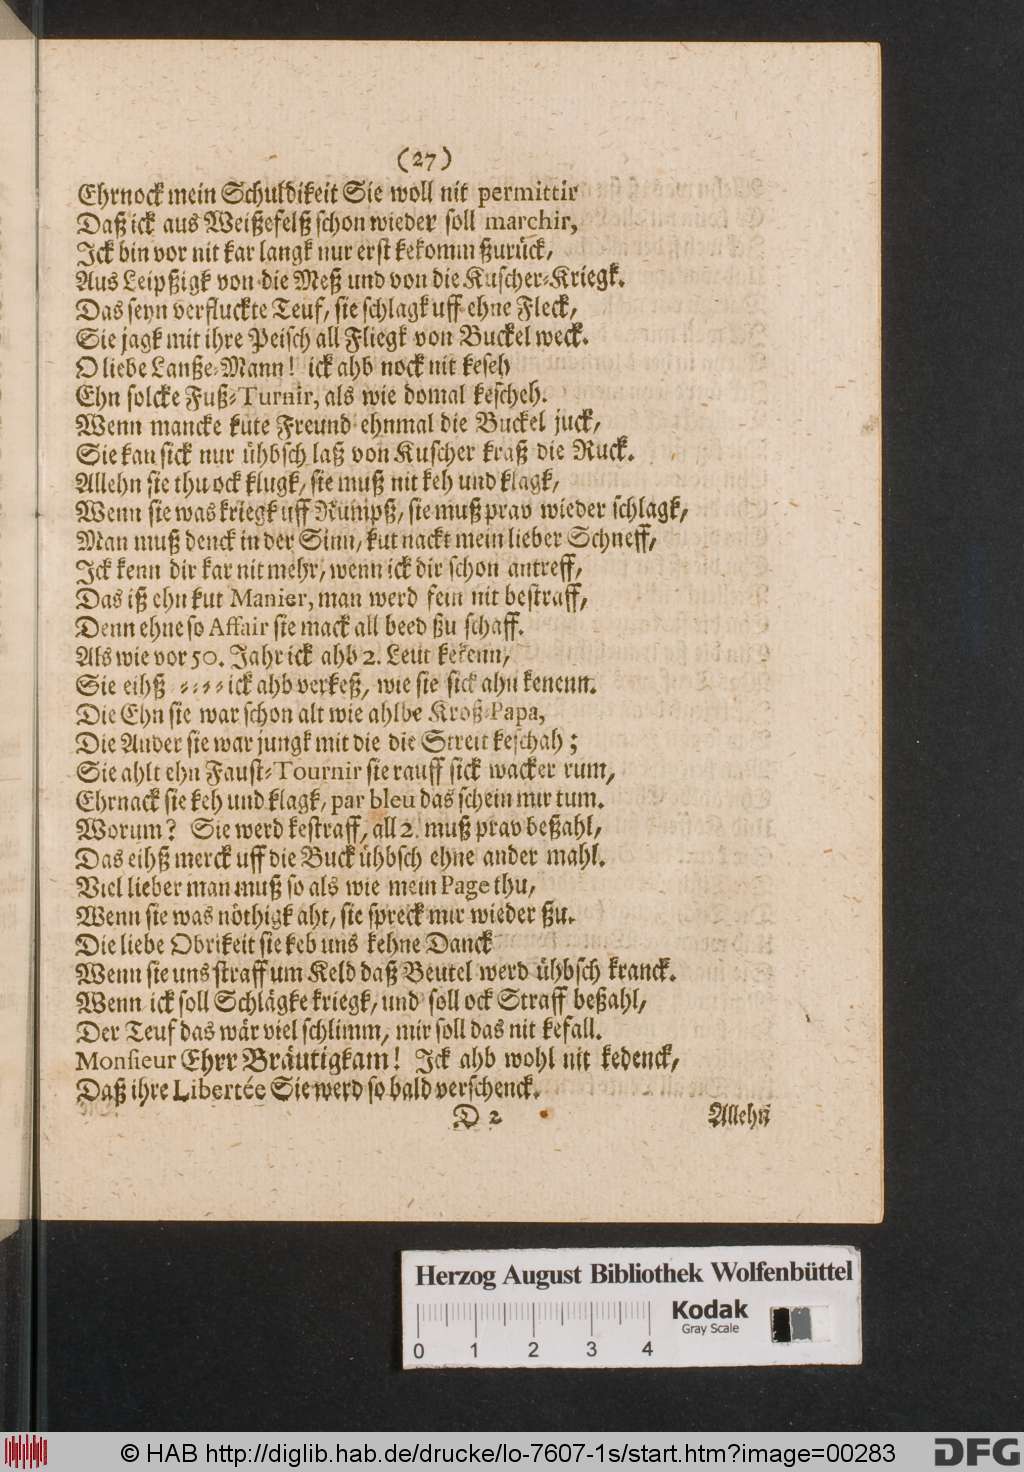 (27)
Ehrnock mein Schuldikeit Sie woll nit permittir
Daß ick aus Weißefelß schon wieder soll marchir,
Ick bin vor nit kar langk nur erst kekomm ßurück,
Aus Leipßigk von die Meß und von die Kuscher-Kriegk.
Das seyn verfluckte Teuf, sie schlagk uff ehne Fleck,
Sie jagk mit ihre Peisch all Fliegk von Buckel weck.
O liebe Lanße-Mann! ick ahb nock nit keseh
Ehn solcke Fuß-Turnir, als wie domal kescheh.
Wenn mancke kute Freund ehnmal die Buckel juck,
Sie kan sick nur ühbsch laß von Kuscher kraß die Ruck.
Allehn sie thu ock klugk, sie muß nit keh und klagk,
Wenn sie was kriegk uff Rumpß, sie muß prav wieder schlagk,
Man muß denck in der Sinn, kut nackt mein lieber Schneff,
Ick kenn dir kar nit mehr, wenn ick dir schon antreff,
Das iß ehn kut Manier, man werd fein nit bestraff,
Denn ehne so Affair sie mack all beed ßu schaff.
Als wie vor 50. Jahr ick ahb 2. Leut kekenn,
Sie eihß - - - - ick ahb verkeß, wie sie sick ahn kenenn.
Die Ehn sie war schon alt wie ahlbe Kroß-Papa,
Die Ander sie war jungk mit die die Streit keschah;
Sie ahlt ehn Faust-Tournir sie rauff sick wacker rum,
Ehrnack sie keh und klagk, par bleu das schein mir tum.
Worum? Sie werd kestraff, all 2. muß prav beßahl,
Das eihß merck uff die Buck ühbsch ehne ander mahl.
Viel lieber man muß so als wie mein Page thu,
Wenn sie was nöthigk aht, sie spreck mir wieder ßu.
Die liebe Obrikeit sie keb uns kehne Danck
Wenn sie uns straff um Keld daß Beutel werd ühbsch kranck.
Wenn ick soll Schlägke kriegk, und soll ock Straff beßahl,
Der Teuf das wär viel schlimm, mir soll das nit kefall.
Monsieur Ehrr Bräutigkam! Ick ahb wohl nit kedenck,
Daß ihre Libertée Sie werd so bald verschenck.
D 2
Allehn
Herzog August Bibliothek Wolfenbüttel
Kodak
Gray Scale
0 1 2 3 4
© HAB http://diglib.hab.de/drucke/lo-7607-1s/start.htm?image=00283
DFG